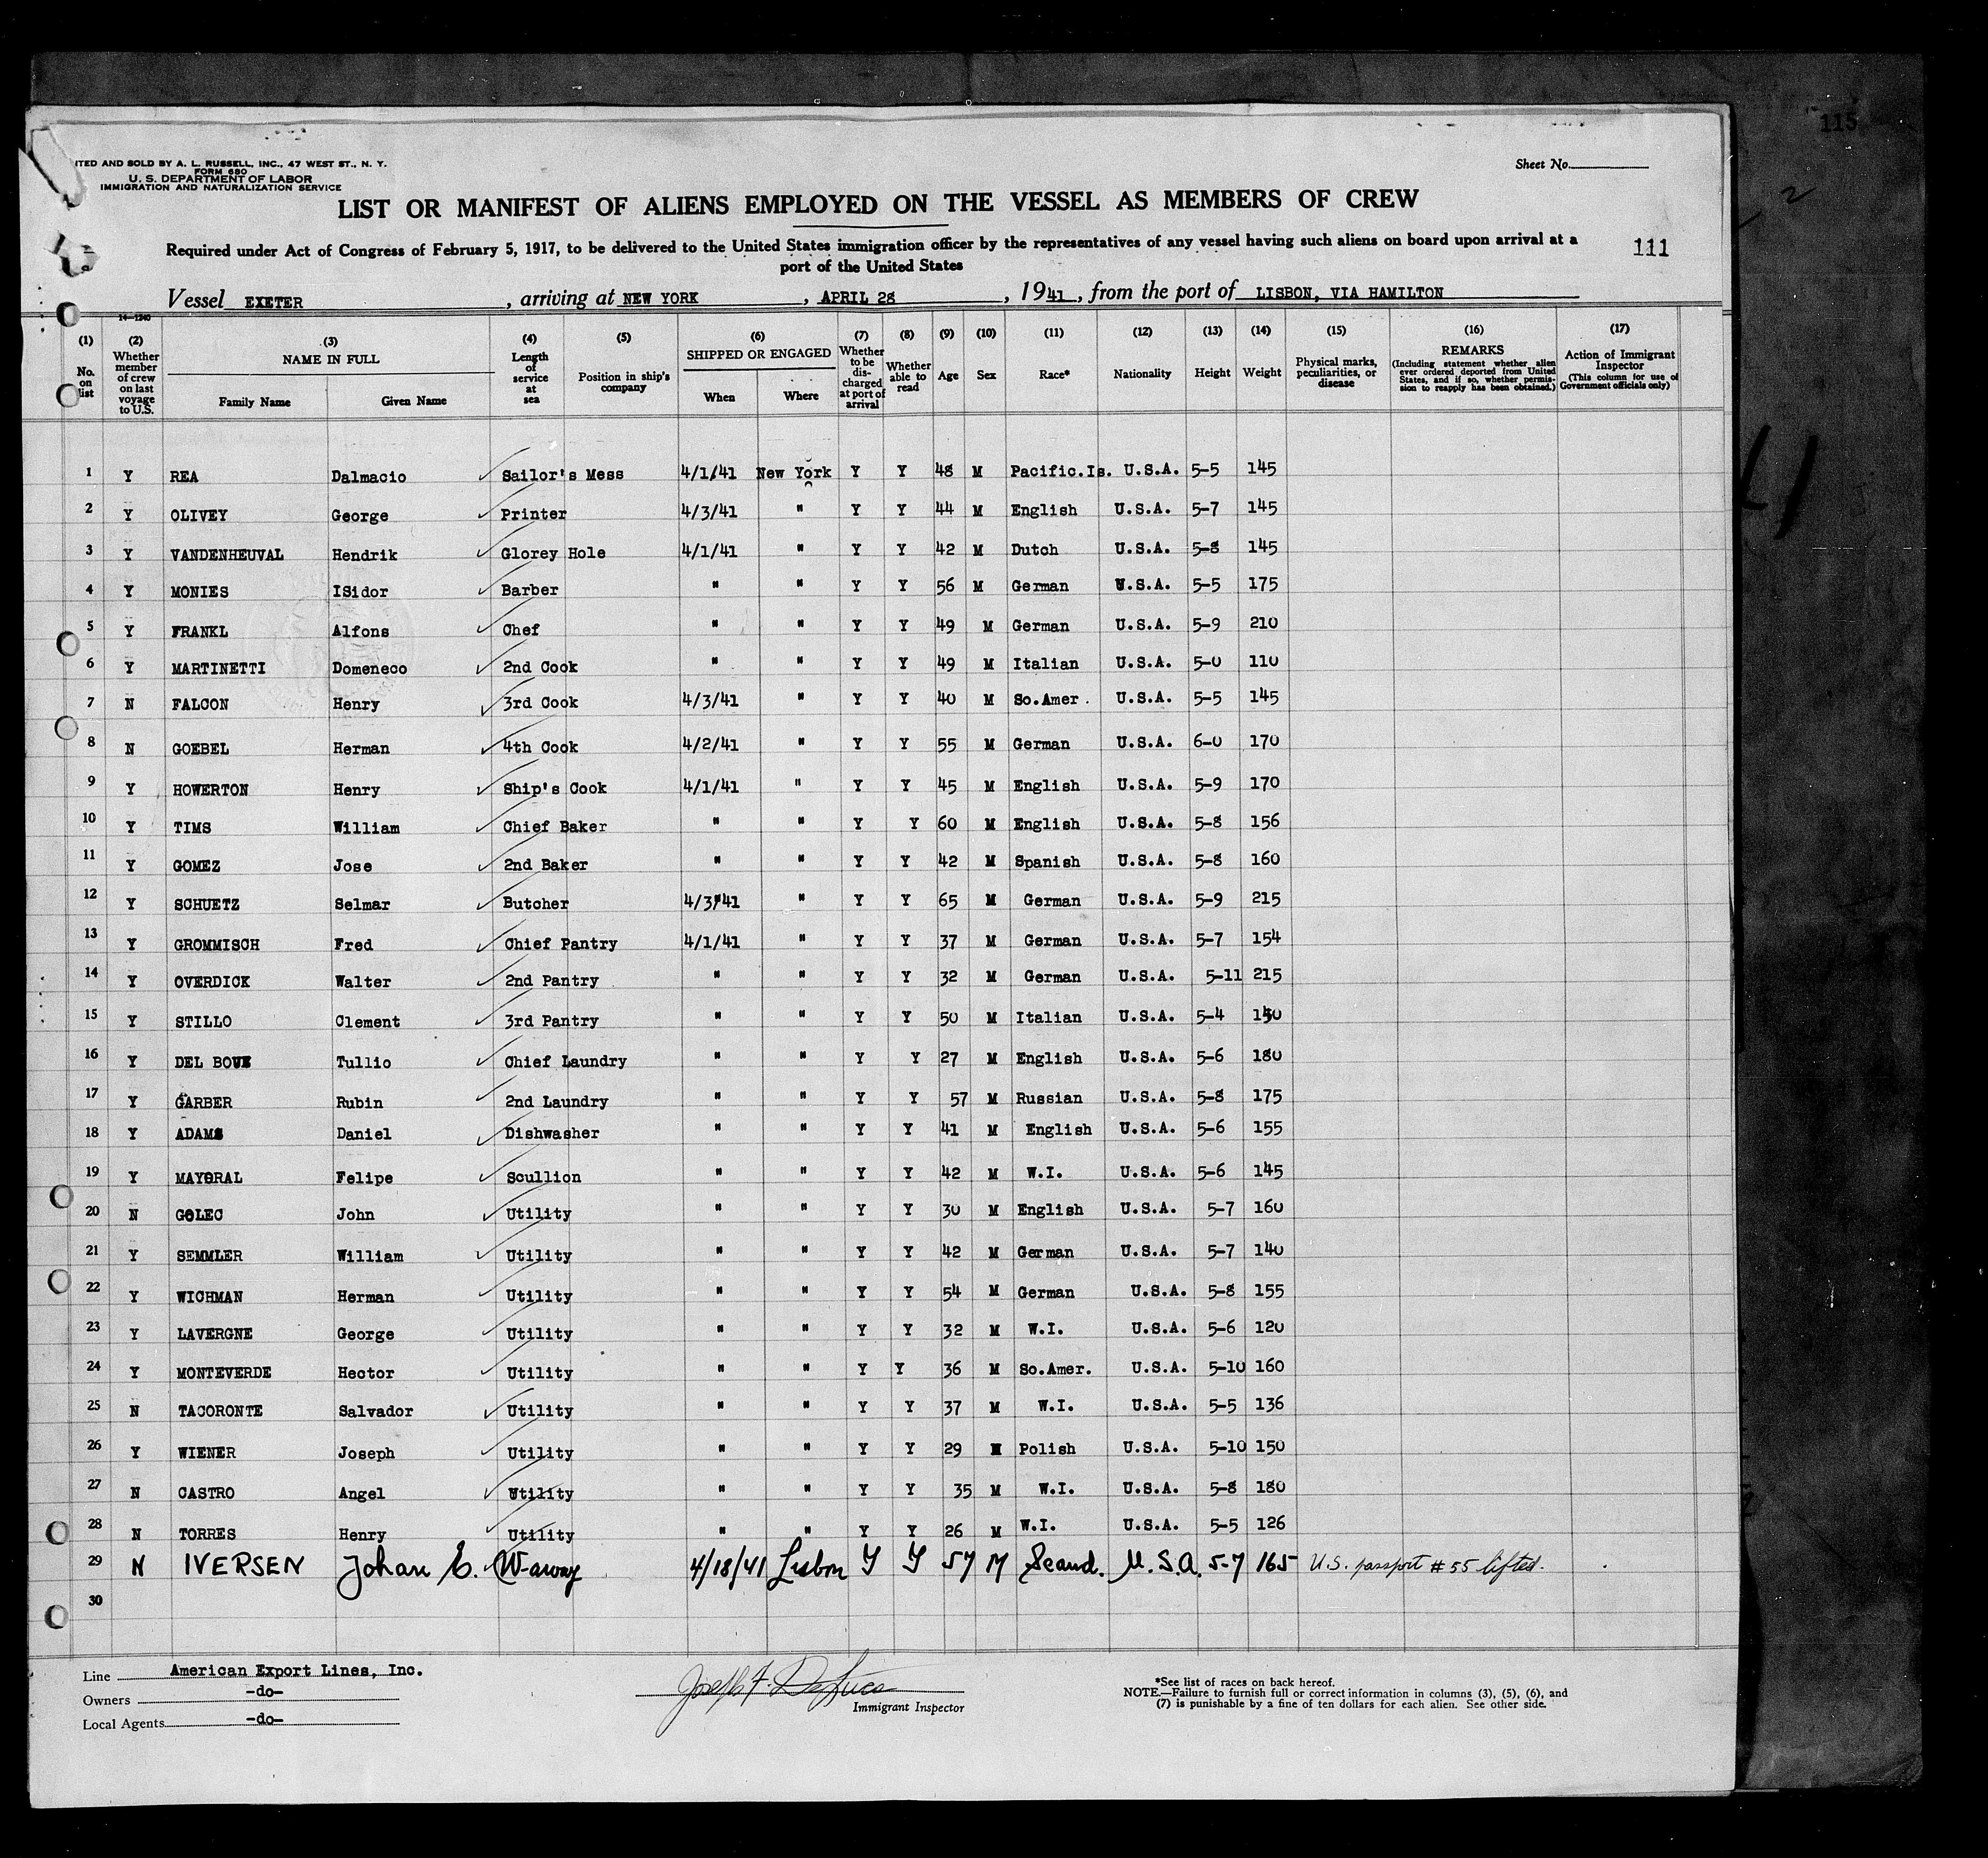 115
ITED AND SOLD BY A. L. RUSSELL, INC., 47 WEST ST., N. Y.
FORM 680
U. S. DEPARTMENT OF LABOR
IMMIGRATION AND NATURALIZATION SERVICE
Sheet No.
LIST OR MANIFEST OF ALIENS EMPLOYED ON THE VESSEL AS MEMBERS OF CREW
Required under Act of Congress of February 5, 1917, to be delivered to the United States immigration officer by the representatives of any vessel having such aliens on board upon arrival at a
port of the United States
111
Vessel EXETER, arriving at NEW YORK, APRIL 28, 1941, from the port of LISBON, VIA HAMILTON
14—1240
(1) No. on list
(2) Whether member of crew on last voyage to U.S.
(3) NAME IN FULL Family Name Given Name
(4) Length of service at sea
(5) Position in ship's company
(6) SHIPPED OR ENGAGED When Where
(7) Whether to be discharged at port of arrival
(8) Whether able to read
(9) Age
(10) Sex
(11) Race*
(12) Nationality
(13) Height
(14) Weight
(15) Physical marks, peculiarities, or disease
(16) REMARKS (Including statement whether alien ever ordered deported from United States, and if so, whether permission to reapply has been obtained.)
(17) Action of Immigrant Inspector (This column for use of Government officials only)
1 Y REA Dalmacio Sailor's Mess 4/1/41 New York Y Y 48 M Pacific.Is. U.S.A. 5-5 145
2 Y OLIVEY George Printer 4/3/41 " Y Y 44 M English U.S.A. 5-7 145
3 Y VANDENHEUVAL Hendrik Glorey Hole 4/1/41 " Y Y 42 M Dutch U.S.A. 5-8 145
4 Y MONIES ISidor Barber " " Y Y 56 M German U.S.A. 5-5 175
5 Y FRANKL Alfons Chef " " Y Y 49 M German U.S.A. 5-9 210
6 Y MARTINETTI Domeneco 2nd Cook " " Y Y 49 M Italian U.S.A. 5-0 110
7 N FALCON Henry 3rd Cook 4/3/41 " Y Y 40 M So.Amer. U.S.A. 5-5 145
8 N GOEBEL Herman 4th Cook 4/2/41 " Y Y 55 M German U.S.A. 6-0 170
9 Y HOWERTON Henry Ship's Cook 4/1/41 " Y Y 45 M English U.S.A. 5-9 170
10 Y TIMS William Chief Baker " " Y Y 60 M English U.S.A. 5-8 156
11 Y GOMEZ Jose 2nd Baker " " Y Y 42 M Spanish U.S.A. 5-8 160
12 Y SCHUETZ Selmar Butcher 4/3/41 " Y Y 65 M German U.S.A. 5-9 215
13 Y GROMMISCH Fred Chief Pantry 4/1/41 " Y Y 37 M German U.S.A. 5-7 154
14 Y OVERDICK Walter 2nd Pantry " " Y Y 32 M German U.S.A. 5-11 215
15 Y STILLO Clement 3rd Pantry " " Y Y 50 M Italian U.S.A. 5-4
16 Y DEL BOVE Tullio Chief Laundry " " Y Y 27 M English U.S.A. 5-6 180
17 Y GARBER Rubin 2nd Laundry " " Y Y 57 M Russian U.S.A. 5-8 175
18 Y ADAMS Daniel Dishwasher " " Y Y 41 M English U.S.A. 5-6 155
19 Y MAYORAL Felipe Scullion " " Y Y 42 M W.I. U.S.A. 5-6 145
20 N GOLEC John Utility " " Y Y 30 M English U.S.A. 5-7 160
21 Y SEMMLER William Utility " " Y Y 42 M German U.S.A. 5-7 140
22 Y WICHMAN Herman Utility " " Y Y 54 M German U.S.A. 5-8 155
23 Y LAVERGNE George Utility " " Y Y 32 M W.I. U.S.A. 5-6 120
24 Y MONTEVERDE Hector Utility " " Y Y 36 M So.Amer. U.S.A. 5-10 160
25 N TACORONTE Salvador Utility " " Y Y 37 M W.I. U.S.A. 5-5 136
26 Y WIENER Joseph Utility " " Y Y 29 M Polish U.S.A. 5-10 150
27 N CASTRO Angel Utility " " Y Y 35 M W.I. U.S.A. 5-8 180
28 N TORRES Henry Utility " " Y Y 26 M W.I. U.S.A. 5-5 126
29 N IVERSEN Johan E. W-away 4/18/41 Lisbon Y Y 57 M Scand. U.S.A. 5-7 165 U.S. passport #55 lifted.
30
Line American Export Lines, Inc.
Owners -do-
Local Agents -do-
Joseph F. DeLuca
Immigrant Inspector
*See list of races on back hereof.
NOTE.—Failure to furnish full or correct information in columns (3), (5), (6), and
(7) is punishable by a fine of ten dollars for each alien. See other side.